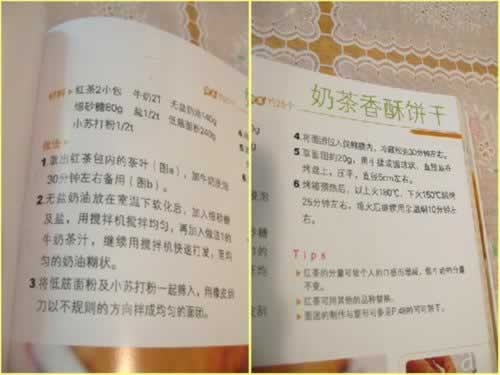 材料 红茶2小包 牛奶2T 无盐奶油140g
细砂糖80g 盐1/2t 低筋面粉240g
小苏打粉1/2t
做法
1 拿出红茶包内的茶叶（图a），加牛奶浸泡
30分钟左右备用（图b）。
2 无盐奶油放在室温下软化后，加入细砂糖
及盐，用搅拌机搅拌均匀，再加入做法1的
牛奶茶汁，继续用搅拌机快速打发，至均
匀的奶油糊状。
3 将低筋面粉及小苏打粉一起筛入，用橡皮刮
刀以不规则的方向拌成均匀的面团。
约25个
奶茶香酥饼干
4. 将面团包入保鲜膜内，冷藏松弛30分钟左右。
5. 取面团约20g，用手揉成圆球状，直接放在
烤盘上，压平，直径5cm左右。
6. 烤箱预热后，以上火180℃、下火150℃烘烤
25分钟左右，熄火后继续用余温焖10分钟左
右。
Tips
红茶的分量可依个人的口感而增减，但牛奶的分量
不变。
红茶可用其他的品种替换。
面团的制作与整形可参见P.48的可可饼干。